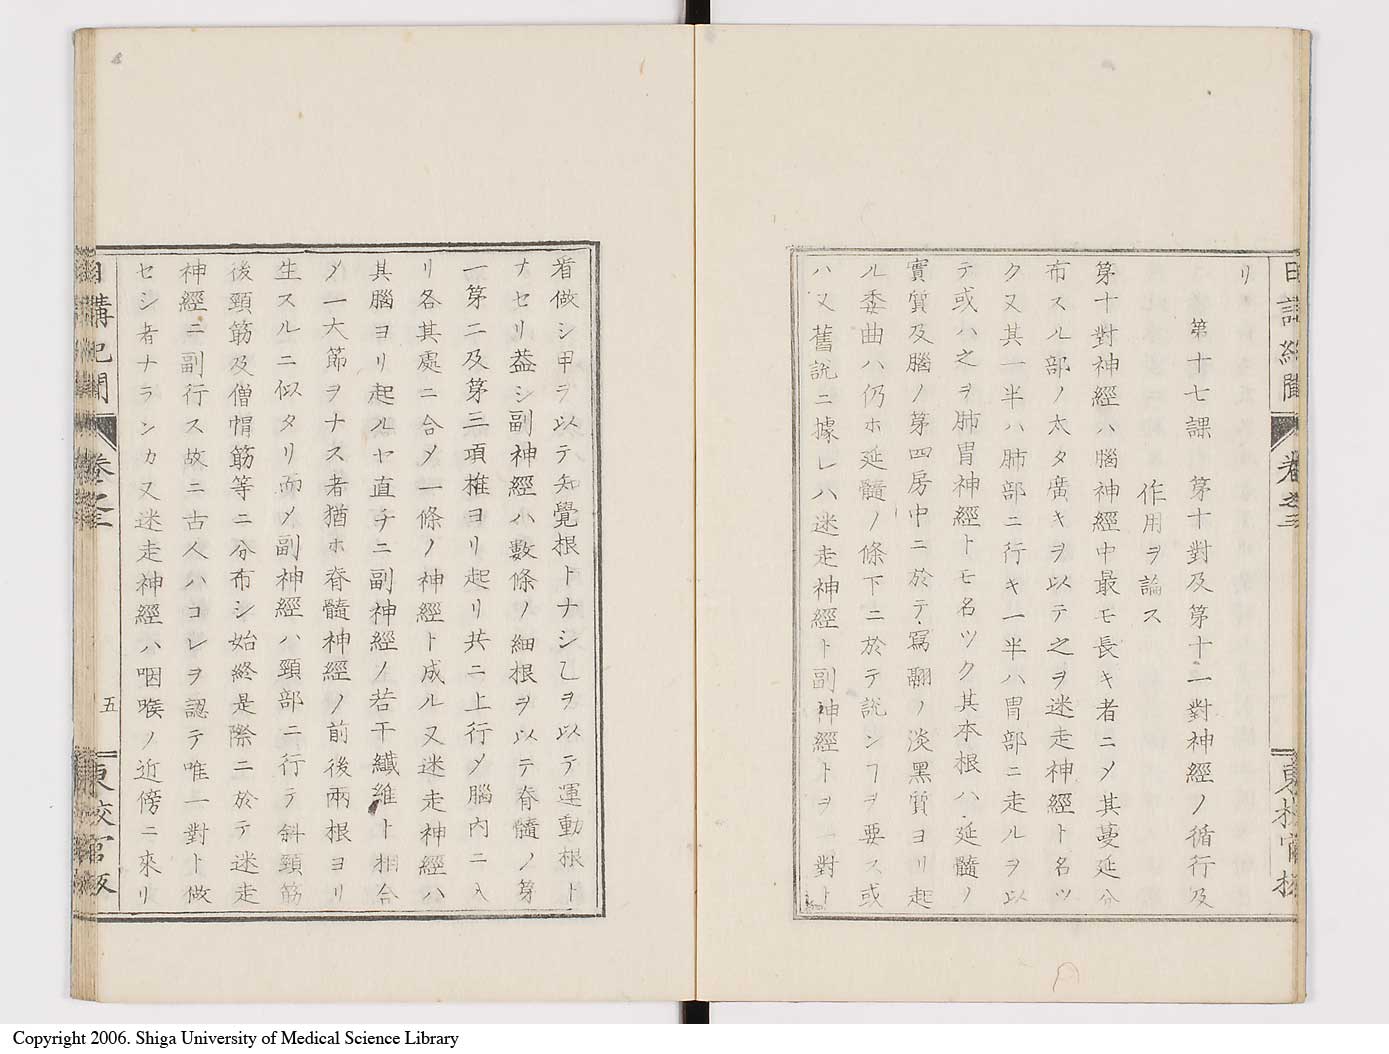 リ
第十七課 第十對及第十一對神經ノ循行及
作用ヲ論ス
第十對神經ハ腦神經中最モ長キ者ニメ其蔓延分
布スル部ノ太タ廣キヲ以テ之ヲ迷走神經ト名ツ
ク又其一半ハ肺部ニ行キ一半ハ胃部ニ走ルヲ以
テ或ハ之ヲ肺胃神經トモ名ツク其本根ハ延髓ノ
實質及腦ノ第四房中ニ於テ寫翮ノ淡黑質ヨリ起
ル委曲ハ仍ホ延髓ノ條下ニ於テ説ンヿヲ要ス或
ハ又舊説ニ據レハ迷走神經ト副神經トヲ一對ト
日講紀聞 卷之三
東校官板
看做シ甲ヲ以テ知覺根トナシ乙ヲ以テ運動根ト
ナセリ葢シ副神經ハ數條ノ細根ヲ以テ脊髓ノ第
一第二及第三項椎ヨリ起リ共ニ上行メ腦内ニ入
リ各其處ニ合メ一條ノ神經ト成ル又迷走神經ハ
其腦ヨリ起ルヤ直チニ副神經ノ若干纎維ト相合
メ一大節ヲナス者猶ホ脊髓神經ノ前後兩根ヨリ
生スルニ似タリ而メ副神經ハ頸部ニ行テ斜頸筋
後頸筋及僧帽筋等ニ分布シ始終是際ニ於テ迷走
神經ニ副行ス故ニ古人ハコレヲ認テ唯一對ト做
セシ者ナランカ又迷走神經ハ咽喉ノ近傍ニ來リ
日講紀聞 卷之三 五 東校官板
Copyright 2006. Shiga University of Medical Science Library